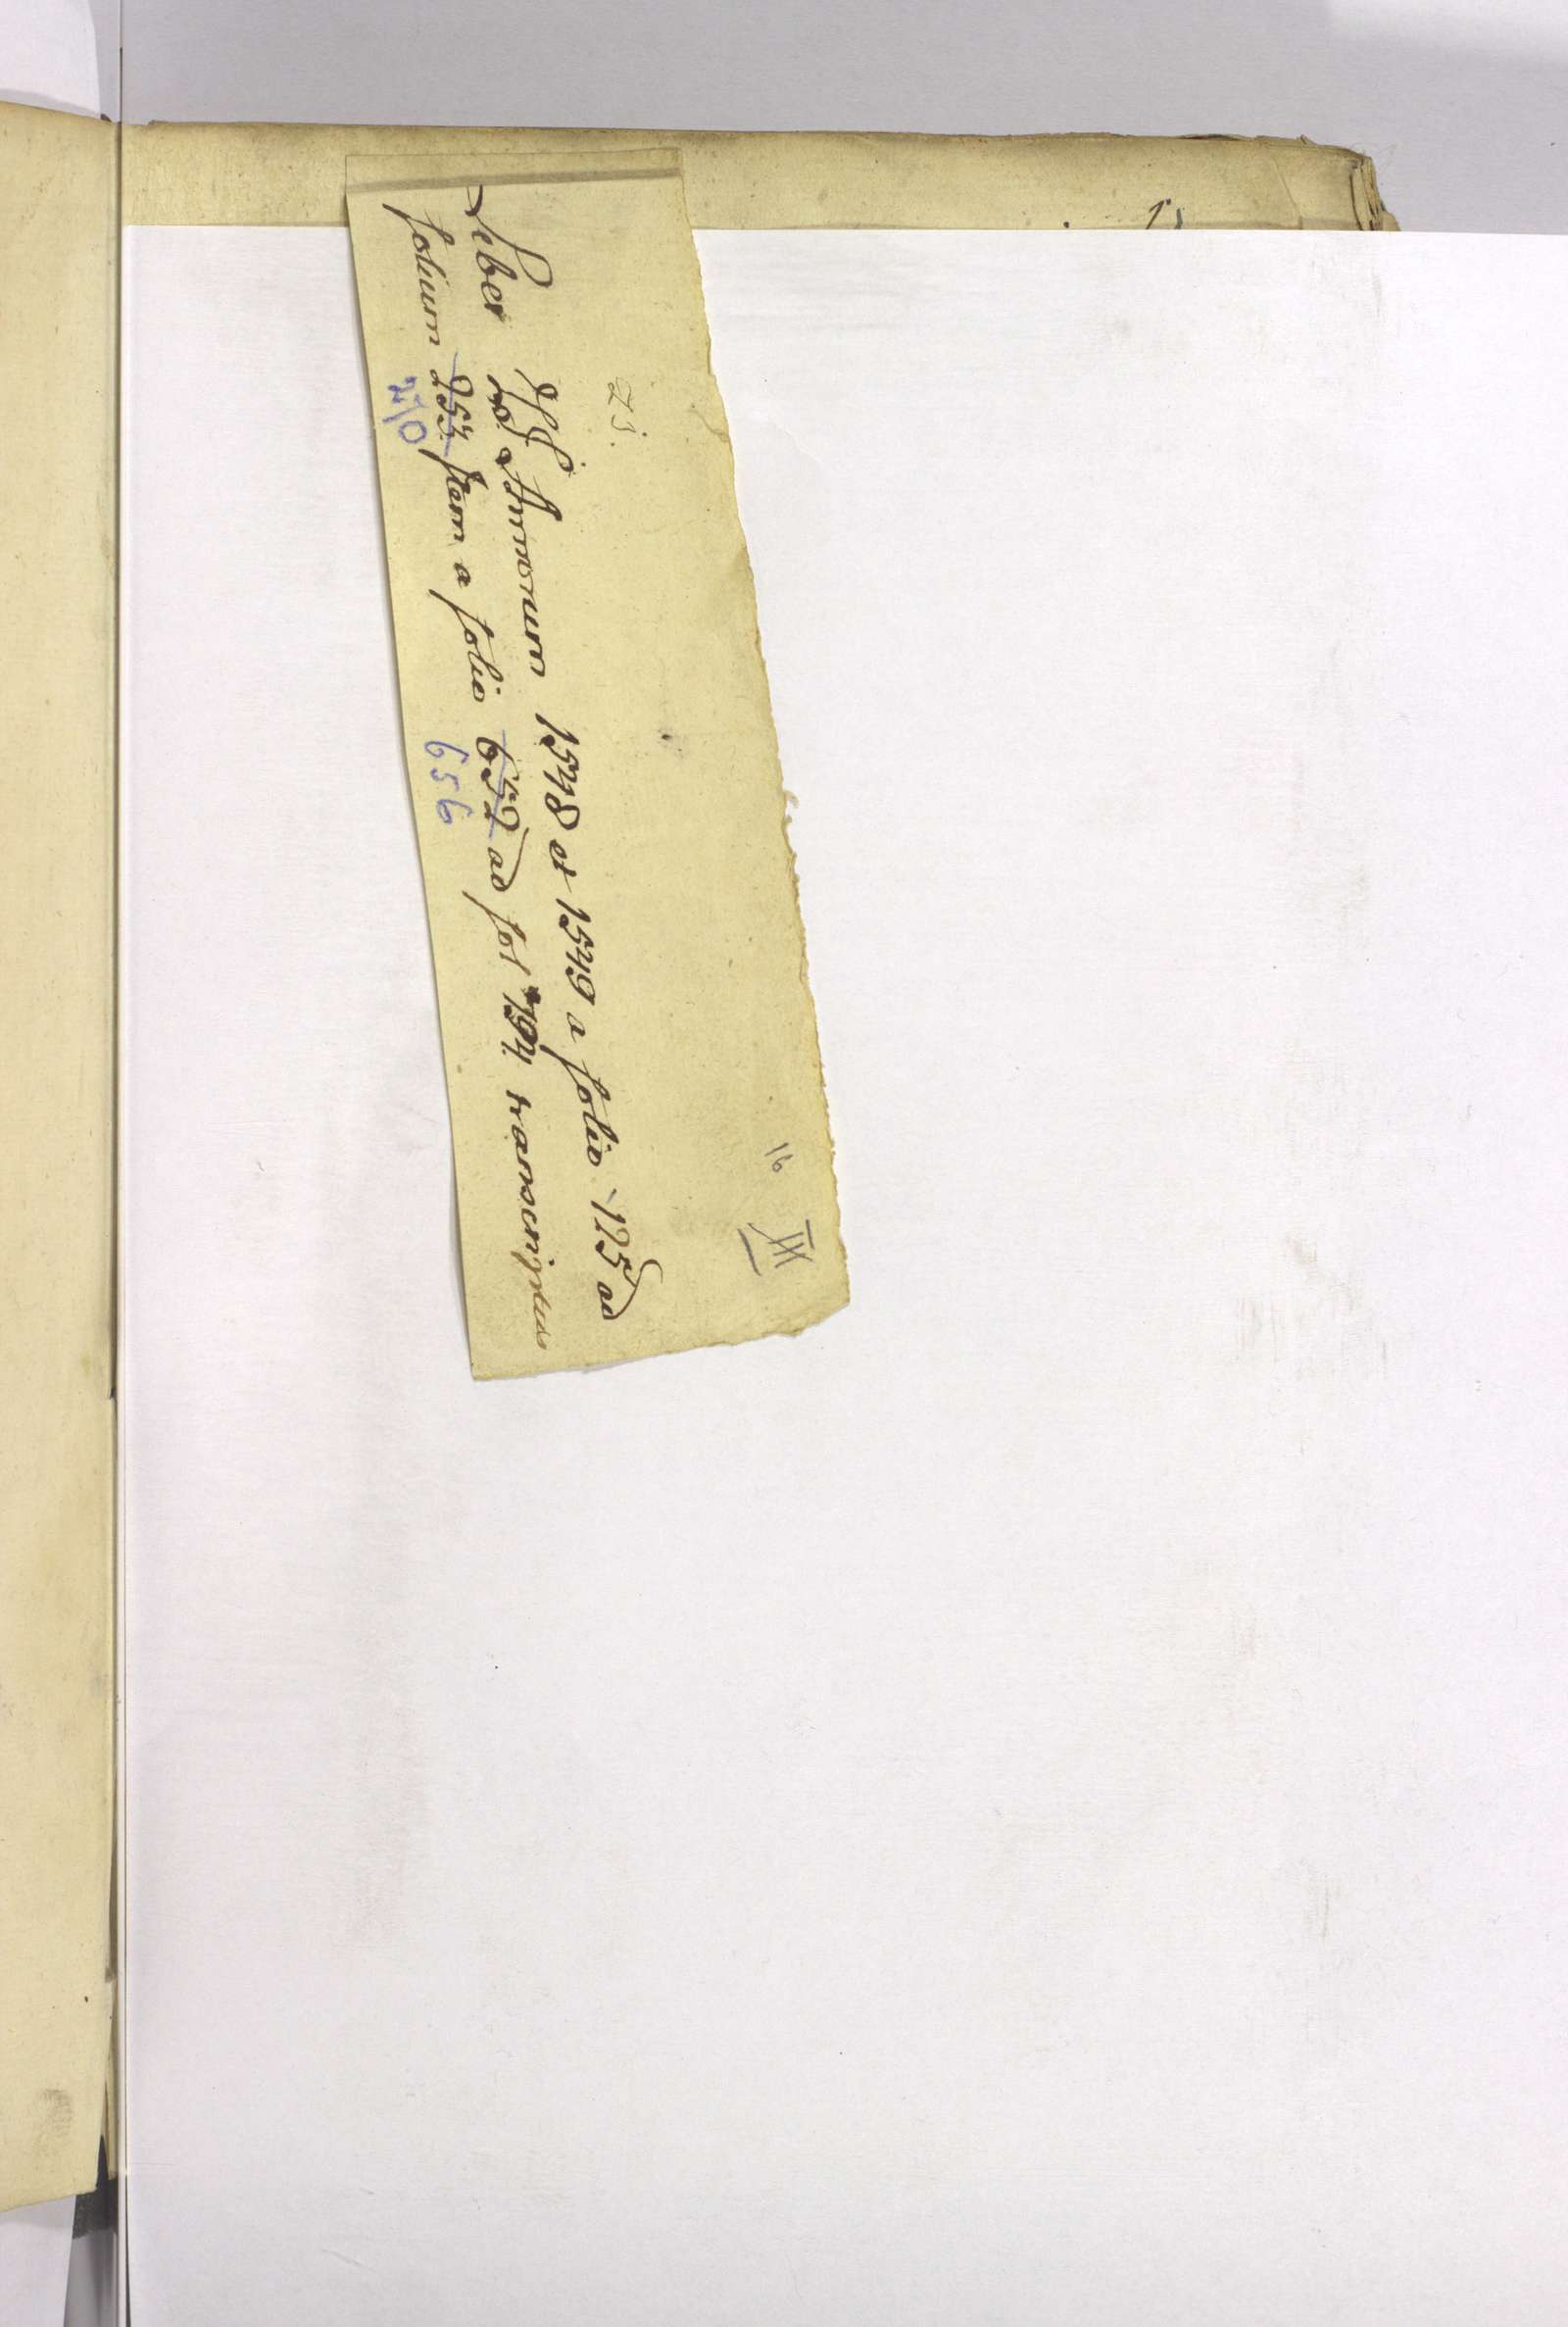 ZS.
16 III
Liber H. Annorum 1548 et 1549 a folio 125 ad
folium 253. Item a folio 652 ad fol 794 transcriptus
270 656